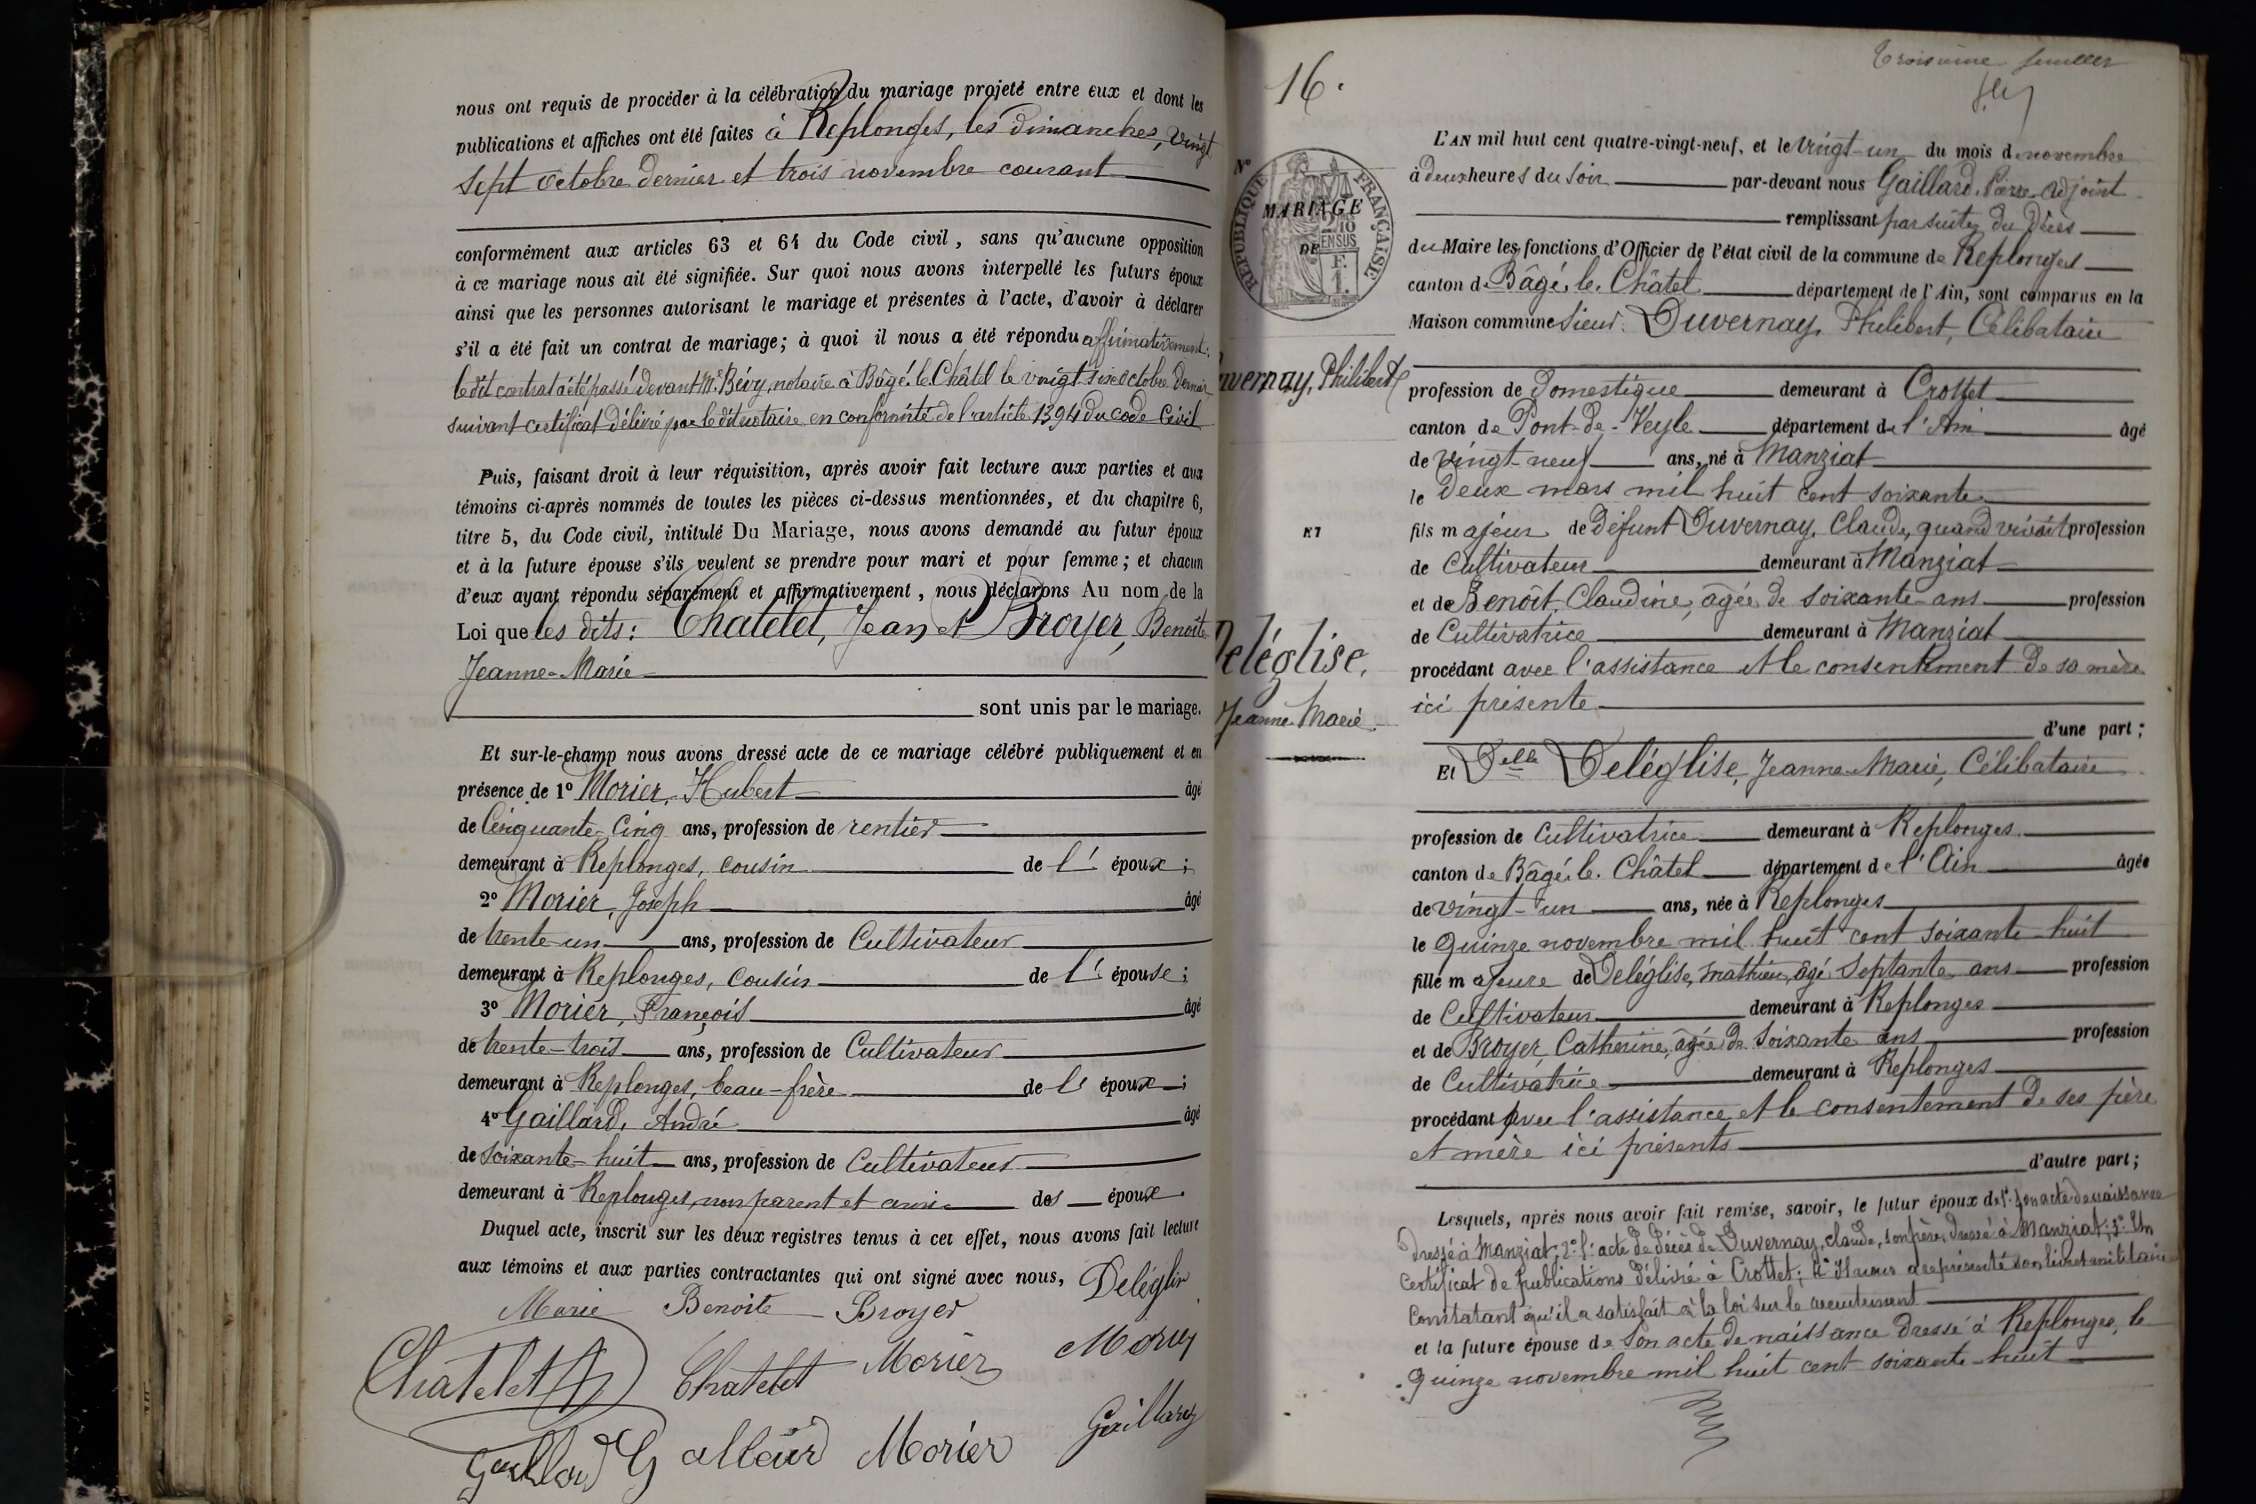 nous ont requis de procéder à la célébration du mariage projeté entre eux et dont les
publications et affiches ont été faites à Replonges, les dimanches, vingt
sept octobre dernier et trois novembre courant
conformément aux articles 63 et 64 du Code civil, sans qu'aucune opposition
à ce mariage nous ait été signifiée. Sur quoi nous avons interpellé les futurs époux
ainsi que les personnes autorisant le mariage et présentes à l'acte, d'avoir à déclarer
s'il a été fait un contrat de mariage; à quoi il nous a été répondu affirmativement:
le dit contrat a été passé devant Me Bévy, notaire à Bâgé-le-Châtel le vingt six octobre dernier
suivant certificat délivré par le dit notaire en conformité de l'article 1394 du code Civil
Puis, faisant droit à leur réquisition, après avoir fait lecture aux parties et aux
témoins ci-après nommés de toutes les pièces ci-dessus mentionnées, et du chapitre 6,
titre 5, du Code civil, intitulé Du Mariage, nous avons demandé au futur époux
et à la future épouse s'ils veulent se prendre pour mari et pour femme; et chacun
d'eux ayant répondu séparément et affirmativement, nous déclarons Au nom de la
Loi que les dits: Chatelet, Jean et Broyer, Benoite
Jeanne-Marie
sont unis par le mariage.
Et sur-le-champ nous avons dressé acte de ce mariage célébré publiquement et en
présence de 1o Morier, Hubert âgé
de Cinquante-cinq ans, profession de rentier
demeurant à Replonges, cousin de l' époux;
2o Morier, Joseph âgé
de trente-un ans, profession de Cultivateur
demeurant à Replonges, cousin de l' épouse;
3o Morier, François âgé
de trente-trois ans, profession de Cultivateur
demeurant à Replonges, beau-frère de l' époux;
4o Gaillard, André âgé
de soixante-huit ans, profession de Cultivateur
demeurant à Replonges, non parent et ami des époux.
Duquel acte, inscrit sur les deux registres tenus à cet effet, nous avons fait lecture
aux témoins et aux parties contractantes qui ont signé avec nous, Deléglise
Marie Benoite Broyer
Chatelet Chatelet Morier Morier
Gaillard G Morier Gaillard
16.
Troisième feuillet
No
RÉPUBLIQUE FRANÇAISE
MARIAGE
DE
Duvernay, Philibert
ET
Deléglise,
Jeanne-Marie
L'AN mil huit cent quatre-vingt-neuf, et le vingt-un du mois de novembre
à deux heures du soir par-devant nous Gaillard, Pierre, adjoint
remplissant par suite du décès
du Maire les fonctions d'Officier de l'état civil de la commune de Replonges
canton de Bâgé-le-Châtel département de l'Ain, sont comparus en la
Maison commune Sieur Duvernay, Philibert, Célibataire
profession de Domestique demeurant à Crottet
canton de Pont-de-Veyle département de l'Ain âgé
de vingt-neuf ans, né à Manziat
le deux mars mil huit cent soixante
fils majeur de défunt Duvernay, Claude, quand vivait profession
de Cultivateur demeurant à Manziat
et de Benoît, Claudine, âgée de soixante ans profession
de Cultivatrice demeurant à Manziat
procédant avec l'assistance et le consentement de sa mère
ici présente
d'une part;
Et Delle Deléglise, Jeanne-Marie, Célibataire
profession de Cultivatrice demeurant à Replonges
canton de Bâgé-le-Châtel département de l'Ain âgée
de vingt-un ans, née à Replonges
le quinze novembre mil huit cent soixante-huit
fille majeure de Deléglise, Mathieu, âgé septante ans profession
de Cultivateur demeurant à Replonges
et de Broyer, Catherine, âgée de soixante ans profession
de Cultivatrice demeurant à Replonges
procédant avec l'assistance et le consentement de ses père
et mère ici présents
d'autre part;
Lesquels, après nous avoir fait remise, savoir, le futur époux de 1o son acte de naissance
dressé à Manziat; 2o l'acte de décès de Duvernay, Claude, son père, dressé à Manziat; 3o Un
certificat de publications délivré à Crottet; 4o Il nous a représenté son livret militaire
constatant qu'il a satisfait à la loi sur le recrutement
et la future épouse de son acte de naissance dressé à Replonges, le
quinze novembre mil huit cent soixante-huit